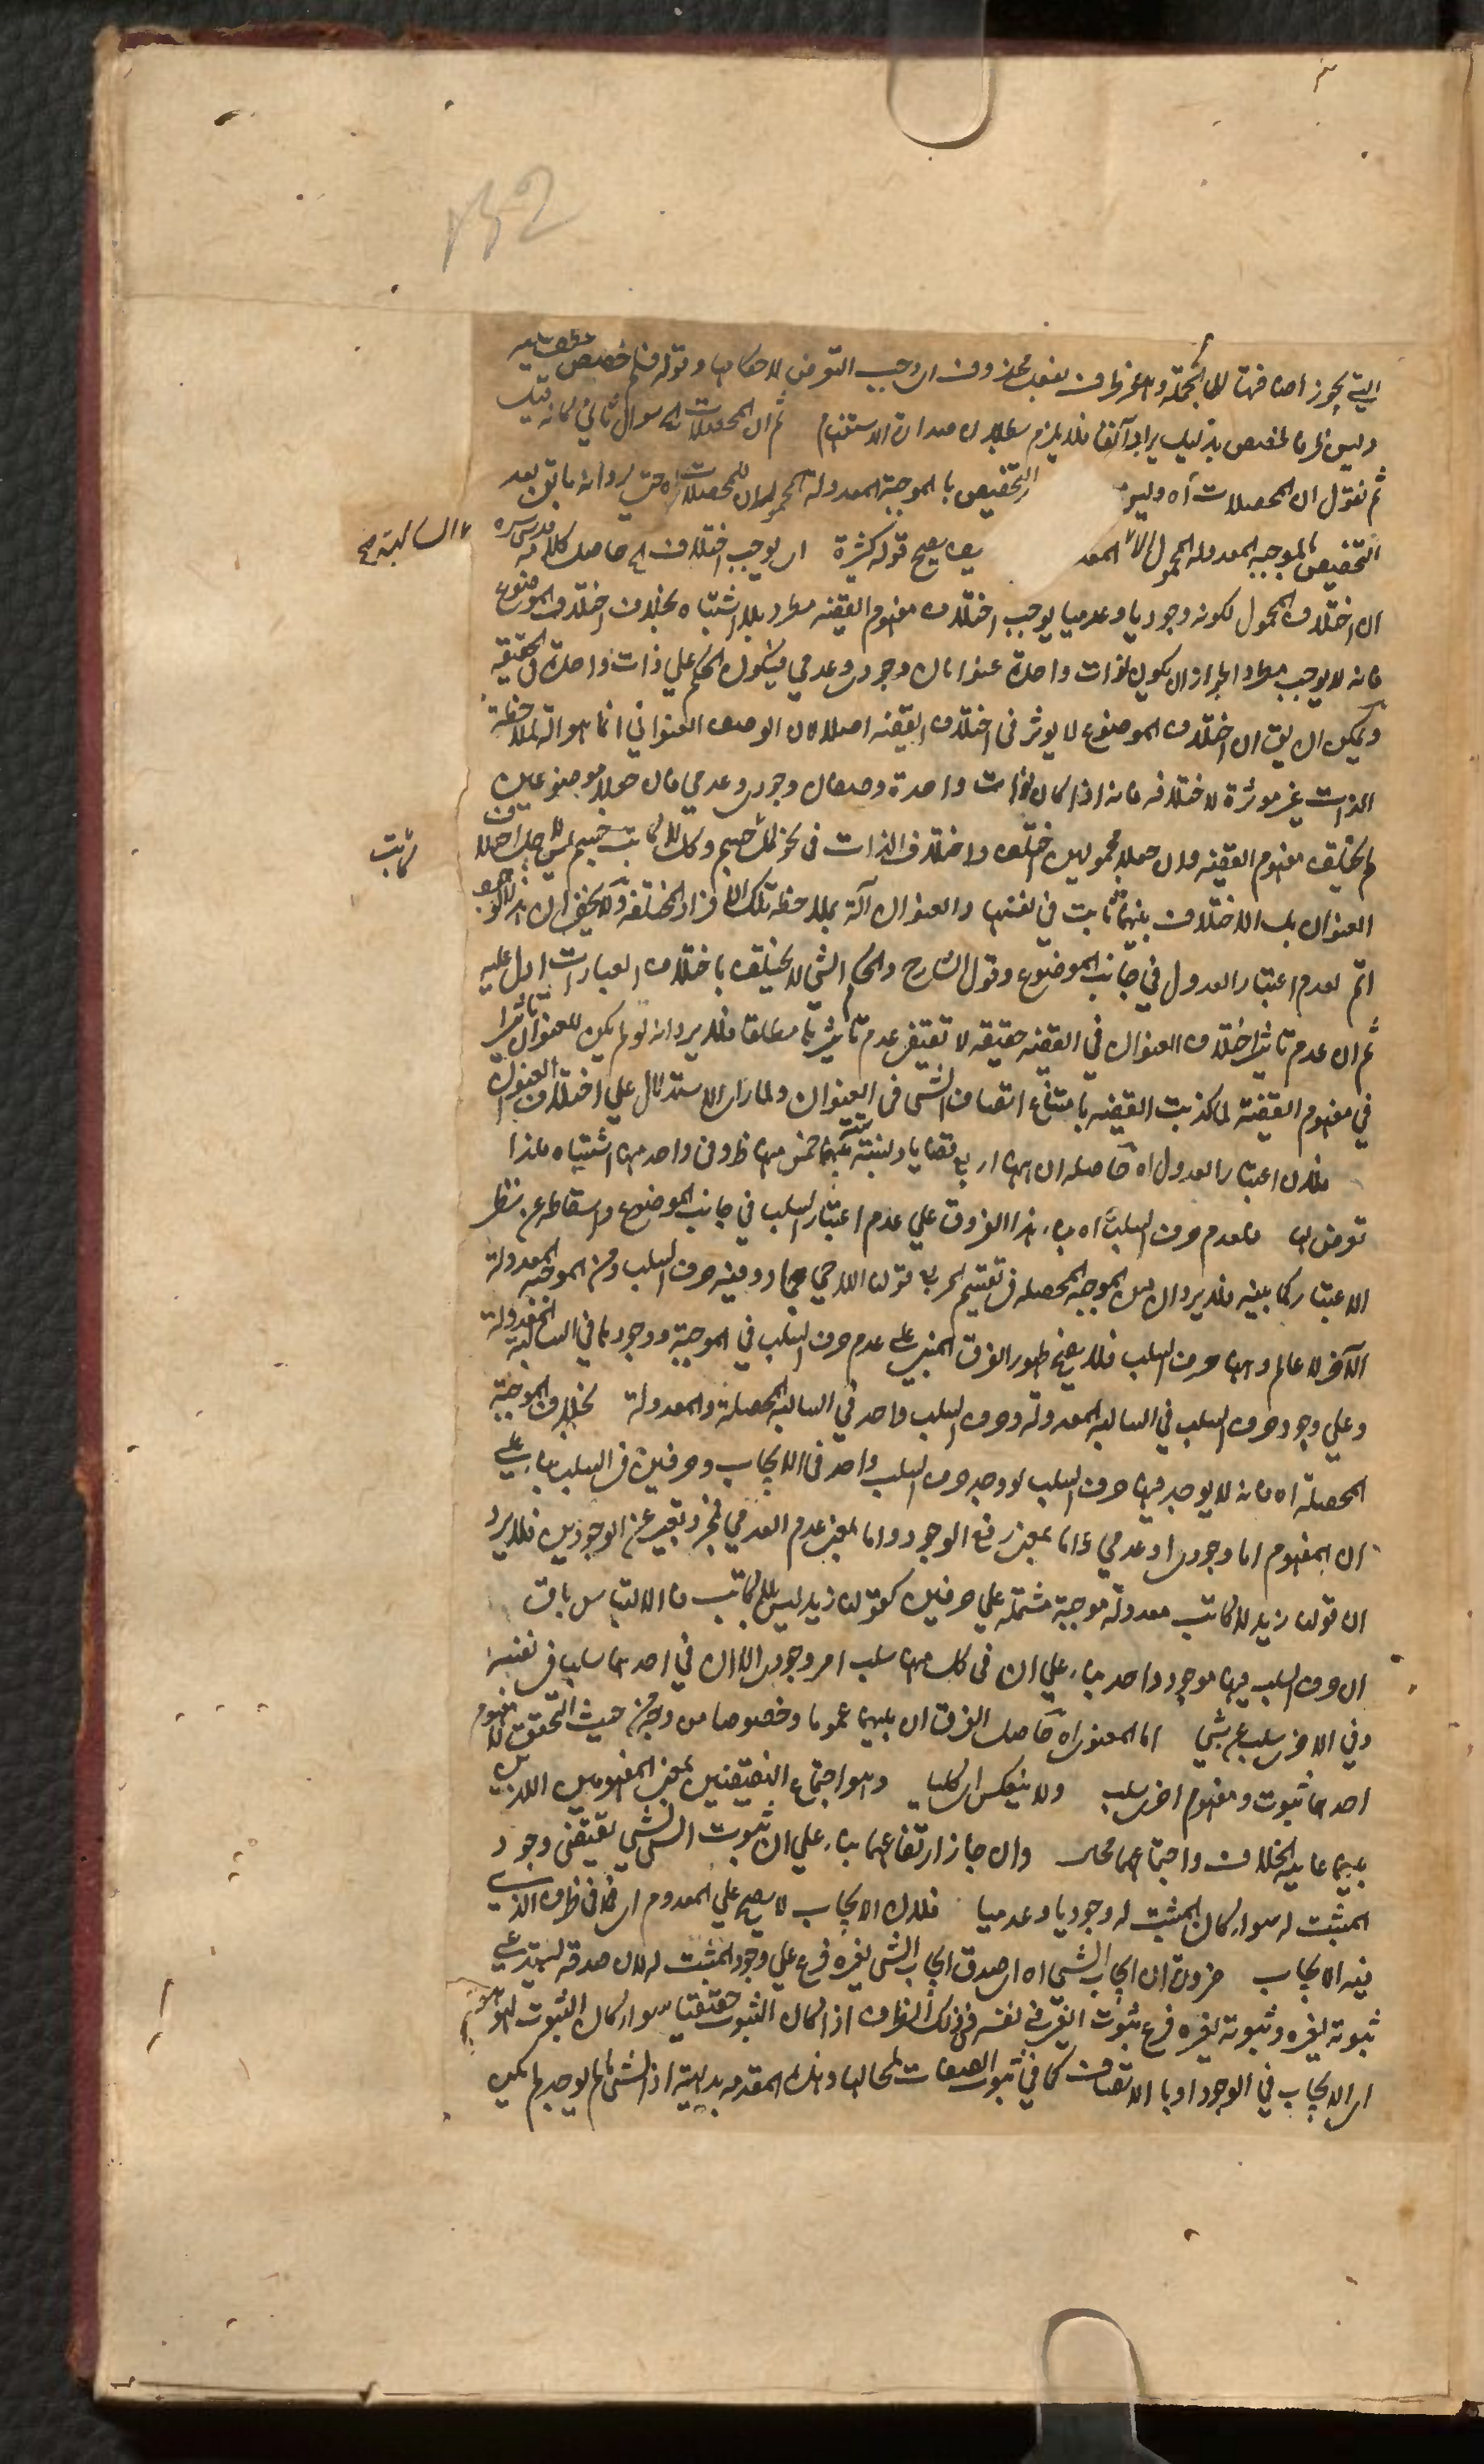 التي يجوز اضافتها الى الجملة وهو ظرف لفعل محذوف اى وجب التعرض لاحكامها وقوله فلم خصص
وليس لحرفا لخصص بدليل ايراد آنفا فلا يلزم بطلان صدارة الاستفهام ثم ان المحصلات اه سوال ثاني كانه قيل
ثم نقول ان المحصلات اه وليس التخصيص بالموجبة المعدولة المحمول للمحصلات اه حتى يرد انه ما بقى بعد
التخصيص بالموجبة المعدولة المحمول الا المعد يصح قوله كثيرة اى يوجب اختلاف الخ حاصل كلامه قدس سره
السالبة صح
ان اختلاف المحمول لكونه وجوديا وعدميا يوجب اختلاف مفهوم القضية مطردا بلا اشتباه بخلاف اختلاف الموضوع
فانه لا يوجب مطردا لجواز ان يكون لذات واحدة عنوانان وجودى وعدمي فيكون الحكم علي ذات واحدة في الحقيقة
ويمكن ان يقال ان اختلاف الموضوع لا يوثر في اختلاف القضية اصلا لان الوصف العنواني انما هو آلة لملاحظة
الذات غير موثرة لاختلافه فانه اذا كان لذات واحدة وصفان وجودى وعدمي فان جعلا موضوعين
لم يختلف مفهوم القضية وان جعلا محمولين اختلف واختلاف الذات في نحو كل جسيم وكل لا كاتب جسيم ليس لاجل اختلاف
كاتب
العنوان بل الاختلاف بينهما ثابت في نفسها والعنوان آلة لملاحظة تلك الافراد المختلفة ولا يخفى ان هذا الوجه
اتم لعدم اعتبار العدول في جانب الموضوع وقول الشارح والحكم الشي لا يختلف باختلاف العبارات ادل عليه
ثم ان عدم تاثير اختلاف العنوان في القضية حقيقة لا تقتضى عدم تاثيرها مطلقا فلا يرد انه لو لم يكن للعنوان تاثيرا
في مفهوم القضية لما كذبت القضية بامتناع اتصاف الشي في العنوان ولما دل الاستدلال علي اختلاف العنوان
فلان اعتبار العدول اه حاصله ان ههنا اربع قضايا ونسبة بينهما ستة خمس منها ظروف واحد منها اشتباه فلذا
تعرض لها فلعدم حرف السلب اه بناء هذا الفرق علي عدم اعتبار السلب في جانب الموضوع واسقاطه عن نظر
الاعتبار كما بينه فلا يرد ان من الموجبة المحصلة في تقسيم المربع قولنا اللاحي جماد وفيه حرف السلب ومن الموجبة المعدولة
الآخر لا عالم وهنا حرف السلب فلا يصح ظهور الفرق المبني على عدم حرف السلب في الموجبة ووجودها في السالبة المعدولة
وعلي وجود حرف السلب في السالبة المعدولة وحرف السلب واحد في السالبة المحصلة والمعدولة بخلاف الموجبة
المحصلة اه فانه لا يوجد فيها حرف السلب لو وجد حرف السلب واحد في الايجاب وحرفين في السلب بناء علي
ان المفهوم اما وجودى او عدمي واما بمعنى رفع الوجود واما بمعنى عدم العدمي فمجرد تعبير عن الوجودين فلا يرد
ان قولنا زيد لا كاتب معدولة موجبة مشتملة علي حرفين كقولنا زيد ليس بلا كاتب فالالتباس باق
ان حرف السلب فيها موجود واحد بناء علي ان في كل منهما سلب امر وجودى الا ان في احدهما سلب في نفسه
وفي الاخرى سلب عن شي اما المعنوى اه حاصل الفرق ان بينهما عموما وخصوصا من وجه من حيث التحقق لا مفهوم
احدهما ثبوت ومفهوم اخرى سلب ولا ينعكس اى كليا وهو اجتماع النقيضين بمعنى المفهومين اللذين
بينهما غاية الخلاف واجتماعهما محال وان جاز ارتفاعهما بناء علي ان ثبوت الشي للشي يقتضى وجود
المثبت له سواء كان المثبت له وجوديا وعدميا فلان الايجاب لا يصح علي المعدوم اى فما في ظرف الذى
فيه الايجاب ضرورة ان ايجاب الشي اه اى صدق ايجاب الشي لغيره فرع علي وجود المثبت له لان صدقه يستدعي
ثبوته لغيره وثبوته لغيره فرع ثبوت الغير في نفسه في ذلك الظرف اذا كان الثبوت حقيقيا سواء كان الثبوت
اى الايجاب في الوجود او بالاتصاف كما في ثبوت الصفات لمحالها وهذه المقدمه بديهية اذ الشي ما لم يوجد لم يكن